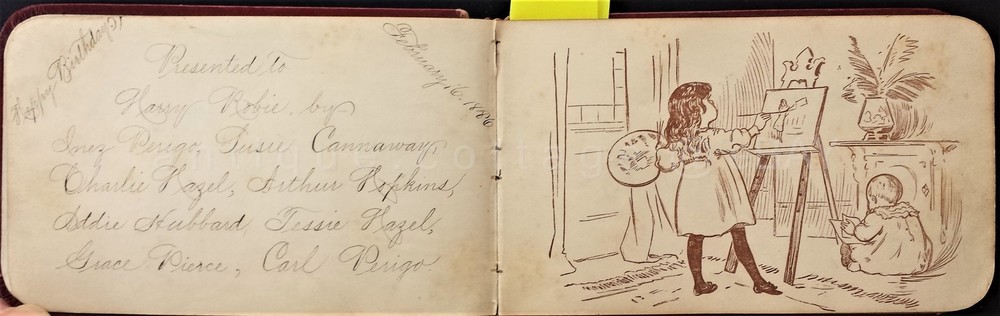 Happy Birthday
February 16. 1886
Presented to
Harry Robie, by
Inez Perigo, Susie Cannaway,
Charlie Hazel, Arthur Hopkins,
Addie Hubbard, Jessie Hazel,
Grace Pierce, Carl Perigo.